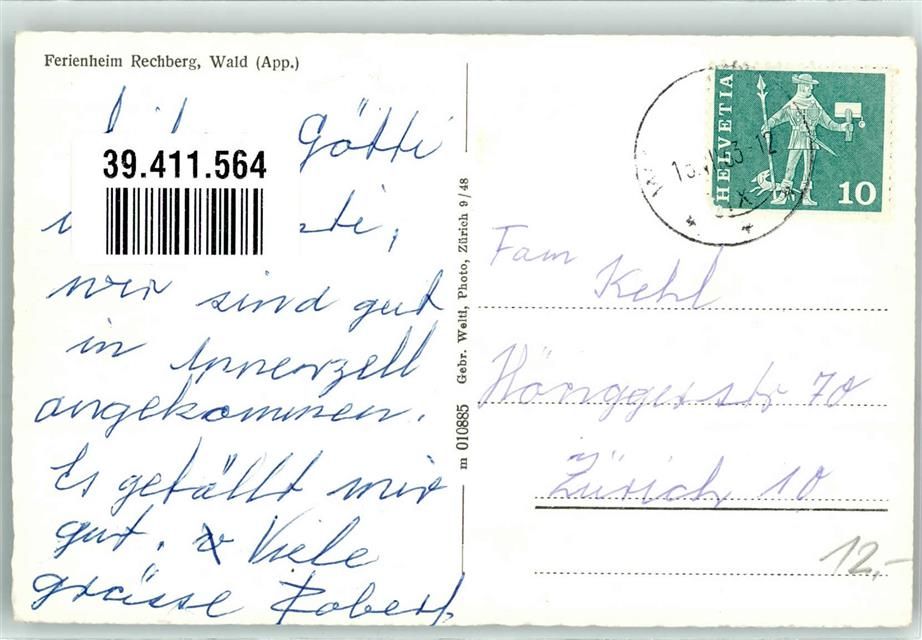 Ferienheim Rechberg, Wald (App.)
Götti
39.411.564
wir sind gut
in Appenzell
angekommen.
Es gefällt mir
gut. Viele
grüsse Robert
m 010885 Gebr. Welti, Photo, Zürich 9/48
HELVETIA
10
Fam
Kehl
Hönggerstr 70
Zürich 10
12.-